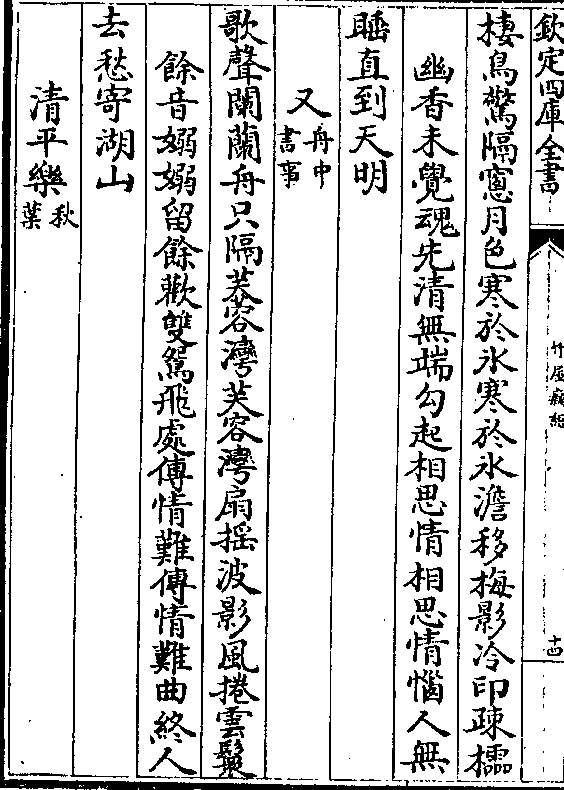 欽定四庫全書
竹屋癡語
十四
棲鳥驚隔窻月色寒於氷寒於氷澹移梅影冷印疎櫺
幽香未覺魂先清無端勾起相思情相思情惱人無
睡直到天明
又舟中書事
歌聲闌蘭舟只隔芙蓉灣芙蓉灣扇揺波影風捲雲鬟
餘音嫋嫋留餘歡雙鴛飛處傳情難傳情難曲終人
去愁寄湖山
清平樂秋葉